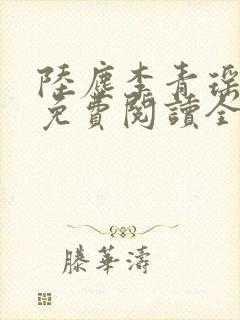 陸塵李青瑤
免費閱讀全
滕華濤